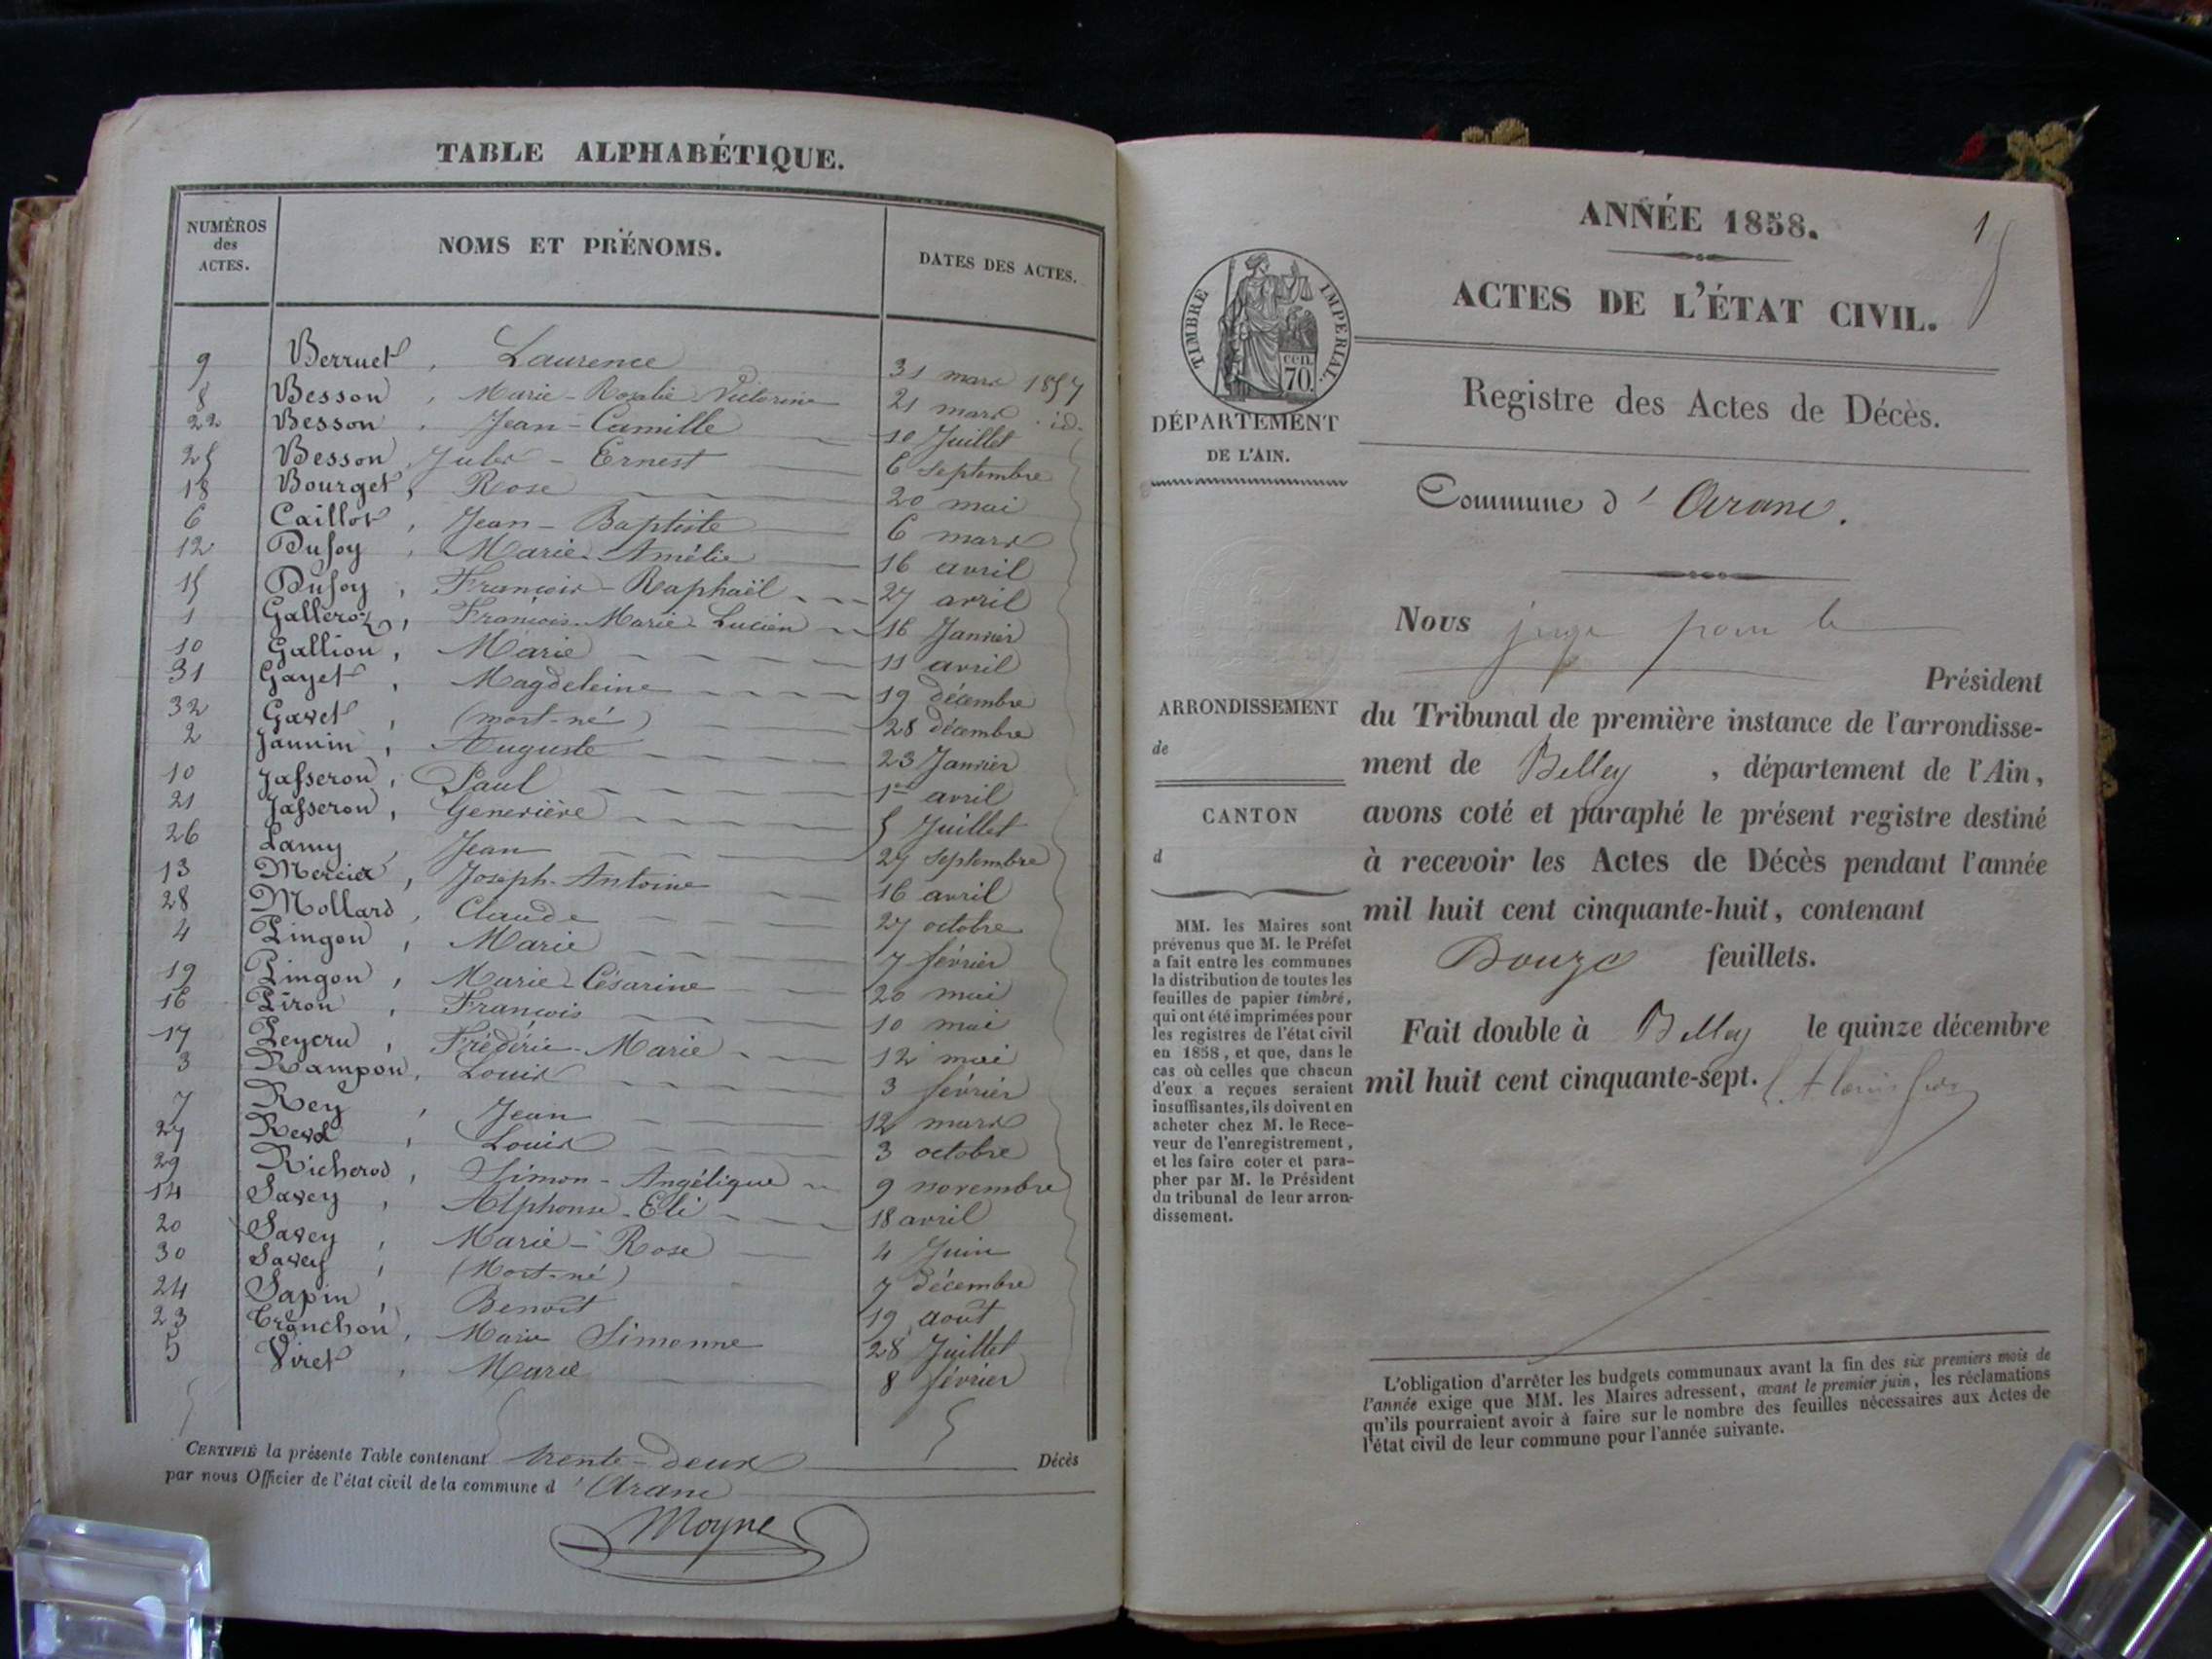 TABLE ALPHABÉTIQUE.
NUMÉROS des ACTES. NOMS ET PRÉNOMS. DATES DES ACTES.
9 Berruet, Laurence 31 mars 1857
8 Besson, Marie-Rosalie Victorine 21 mars id.
22 Besson, Jean-Camille 10 Juillet
25 Besson, Jules-Ernest 6 septembre
18 Bourget, Rose 20 mai
6 Caillot, Jean-Baptiste 6 mars
12 Dufoy, Marie-Amélie 16 avril
15 Dufoy, François-Raphaël 27 avril
1 Galleroz, François-Marie-Lucien 16 Janvier
10 Gallion, Marie 11 avril
31 Gayet, Magdeleine 19 décembre
32 Gavet, (mort-né) 28 décembre
2 Jannin, Auguste 23 Janvier
10 Jasseron, Paul 1er avril
21 Jasseron, Geneviève 5 Juillet
26 Lamy, Jean 27 septembre
13 Mercier, Joseph-Antoine 16 avril
28 Mollard, Claude 27 octobre
4 Pingon, Marie 7 février
19 Pingon, Marie-Césarine 20 mai
16 Piron, François 10 mai
17 Peycru, Frédéric-Marie 12 mai
3 Rampon, Louis 3 février
7 Rey, Jean 12 mars
27 Louis 3 octobre
29 Richerod, Simon-Angélique 9 novembre
14 Savey, Alphonse-Eli 18 avril
20 Savey, Marie-Rose 4 Juin
30 Savey, (Mort-né) 7 décembre
24 Sapin, Benoît 19 août
23 Tranchon, Marie Simonne 28 Juillet
5 Viret, Marie 8 février
CERTIFIÉ la présente Table contenant trente-deux Décès
par nous Officier de l'état civil de la commune d'Aranc
Moyne
1
ANNÉE 1858.
ACTES DE L'ÉTAT CIVIL.
TIMBRE IMPERIAL.
cen. 70.
DÉPARTEMENT
DE L'AIN.
Registre des Actes de Décès.
Commune d'Aranc.
Nous juge pour le
Président
du Tribunal de première instance de l'arrondisse-
ment de Belley, département de l'Ain,
avons coté et paraphé le présent registre destiné
à recevoir les Actes de Décès pendant l'année
mil huit cent cinquante-huit, contenant
Douze feuillets.
Fait double à Belley le quinze décembre
mil huit cent cinquante-sept.
ARRONDISSEMENT
de
CANTON
d
MM. les Maires sont
prévenus que M. le Préfet
a fait entre les communes
la distribution de toutes les
feuilles de papier timbré,
qui ont été imprimées pour
les registres de l'état civil
en 1858, et que, dans le
cas où celles que chacun
d'eux a reçues seraient
insuffisantes, ils doivent en
acheter chez M. le Rece-
veur de l'enregistrement,
et les faire coter et para-
pher par M. le Président
du tribunal de leur arron-
dissement.
L'obligation d'arrêter les budgets communaux avant la fin des six premiers mois de
l'année exige que MM. les Maires adressent, avant le premier juin, les réclamations
qu'ils pourraient avoir à faire sur le nombre des feuilles nécessaires aux Actes de
l'état civil de leur commune pour l'année suivante.